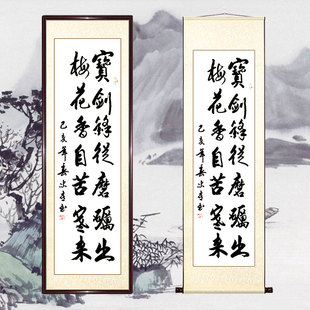 寶劍鋒從磨礪出
梅花香自苦寒来
己亥年春
寶劍鋒從磨礪出
梅花香自苦寒来
己亥年春